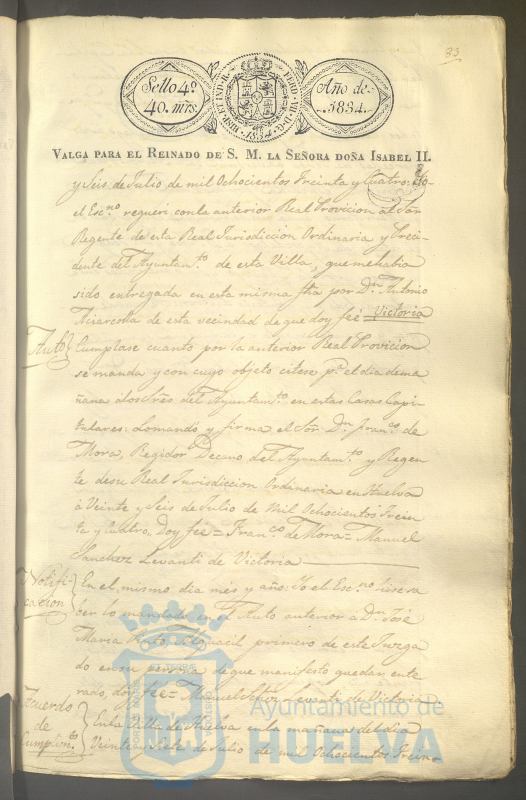 33
Sello 4º
40. mrs.
HISP. ET IND. R. FERD. VII. D. G.
Año de
1834.
VALGA PARA EL REINADO DE S. M. LA SEÑORA DOÑA ISABEL II.
y Seis de Julio de mil Ochocientos Treinta y Cuatro: Yo
el Esc.no requeri con la anterior Real Provicion al Sor
Regente de esta Real Jurisdiccion Ordinaria y Preci-
dente del Ayuntam.to de esta Villa, que me habia
sido entregada en esta misma fha por D.n Antonio
de esta vecindad de que doy feé = Victoria
Auto} Cumplase cuanto por la anterior Real Provicion
se manda y con cuyo objeto citese p.a el dia de ma
ñana a los Sres del Ayuntam.to en estas Casas Capi-
tulares: Lo mandó y firma el Sor D.n Fran.co de
Mora, Regidor Decano del Ayuntam.to y Regen
te de su Real Jurisdiccion Ordinaria en Huelva
á Veinte y Seis de Julio de Mil Ochocientos Trein
ta y Cuatro. Doy feé = Fran.co de Mora = Manuel
Sanchez Levanti de Victoria
Notifi-
cacion} En el mismo dia mes y año: Yo el Esc.no hice sa
ber lo mandado en el Auto anterior á D.n José
Maria Alguacil primero de este Juzga
do en su persona de que manifestó quedar ente
rado, doy feé = Manuel Schez Levanti de Victoria
Acuerdo
de
Cumplim.to} En la Villa de Huelva en la mañana del dia
Veinte y Siete de Julio de mil Ochocientos Trein-
Ayuntamiento de
HUELVA